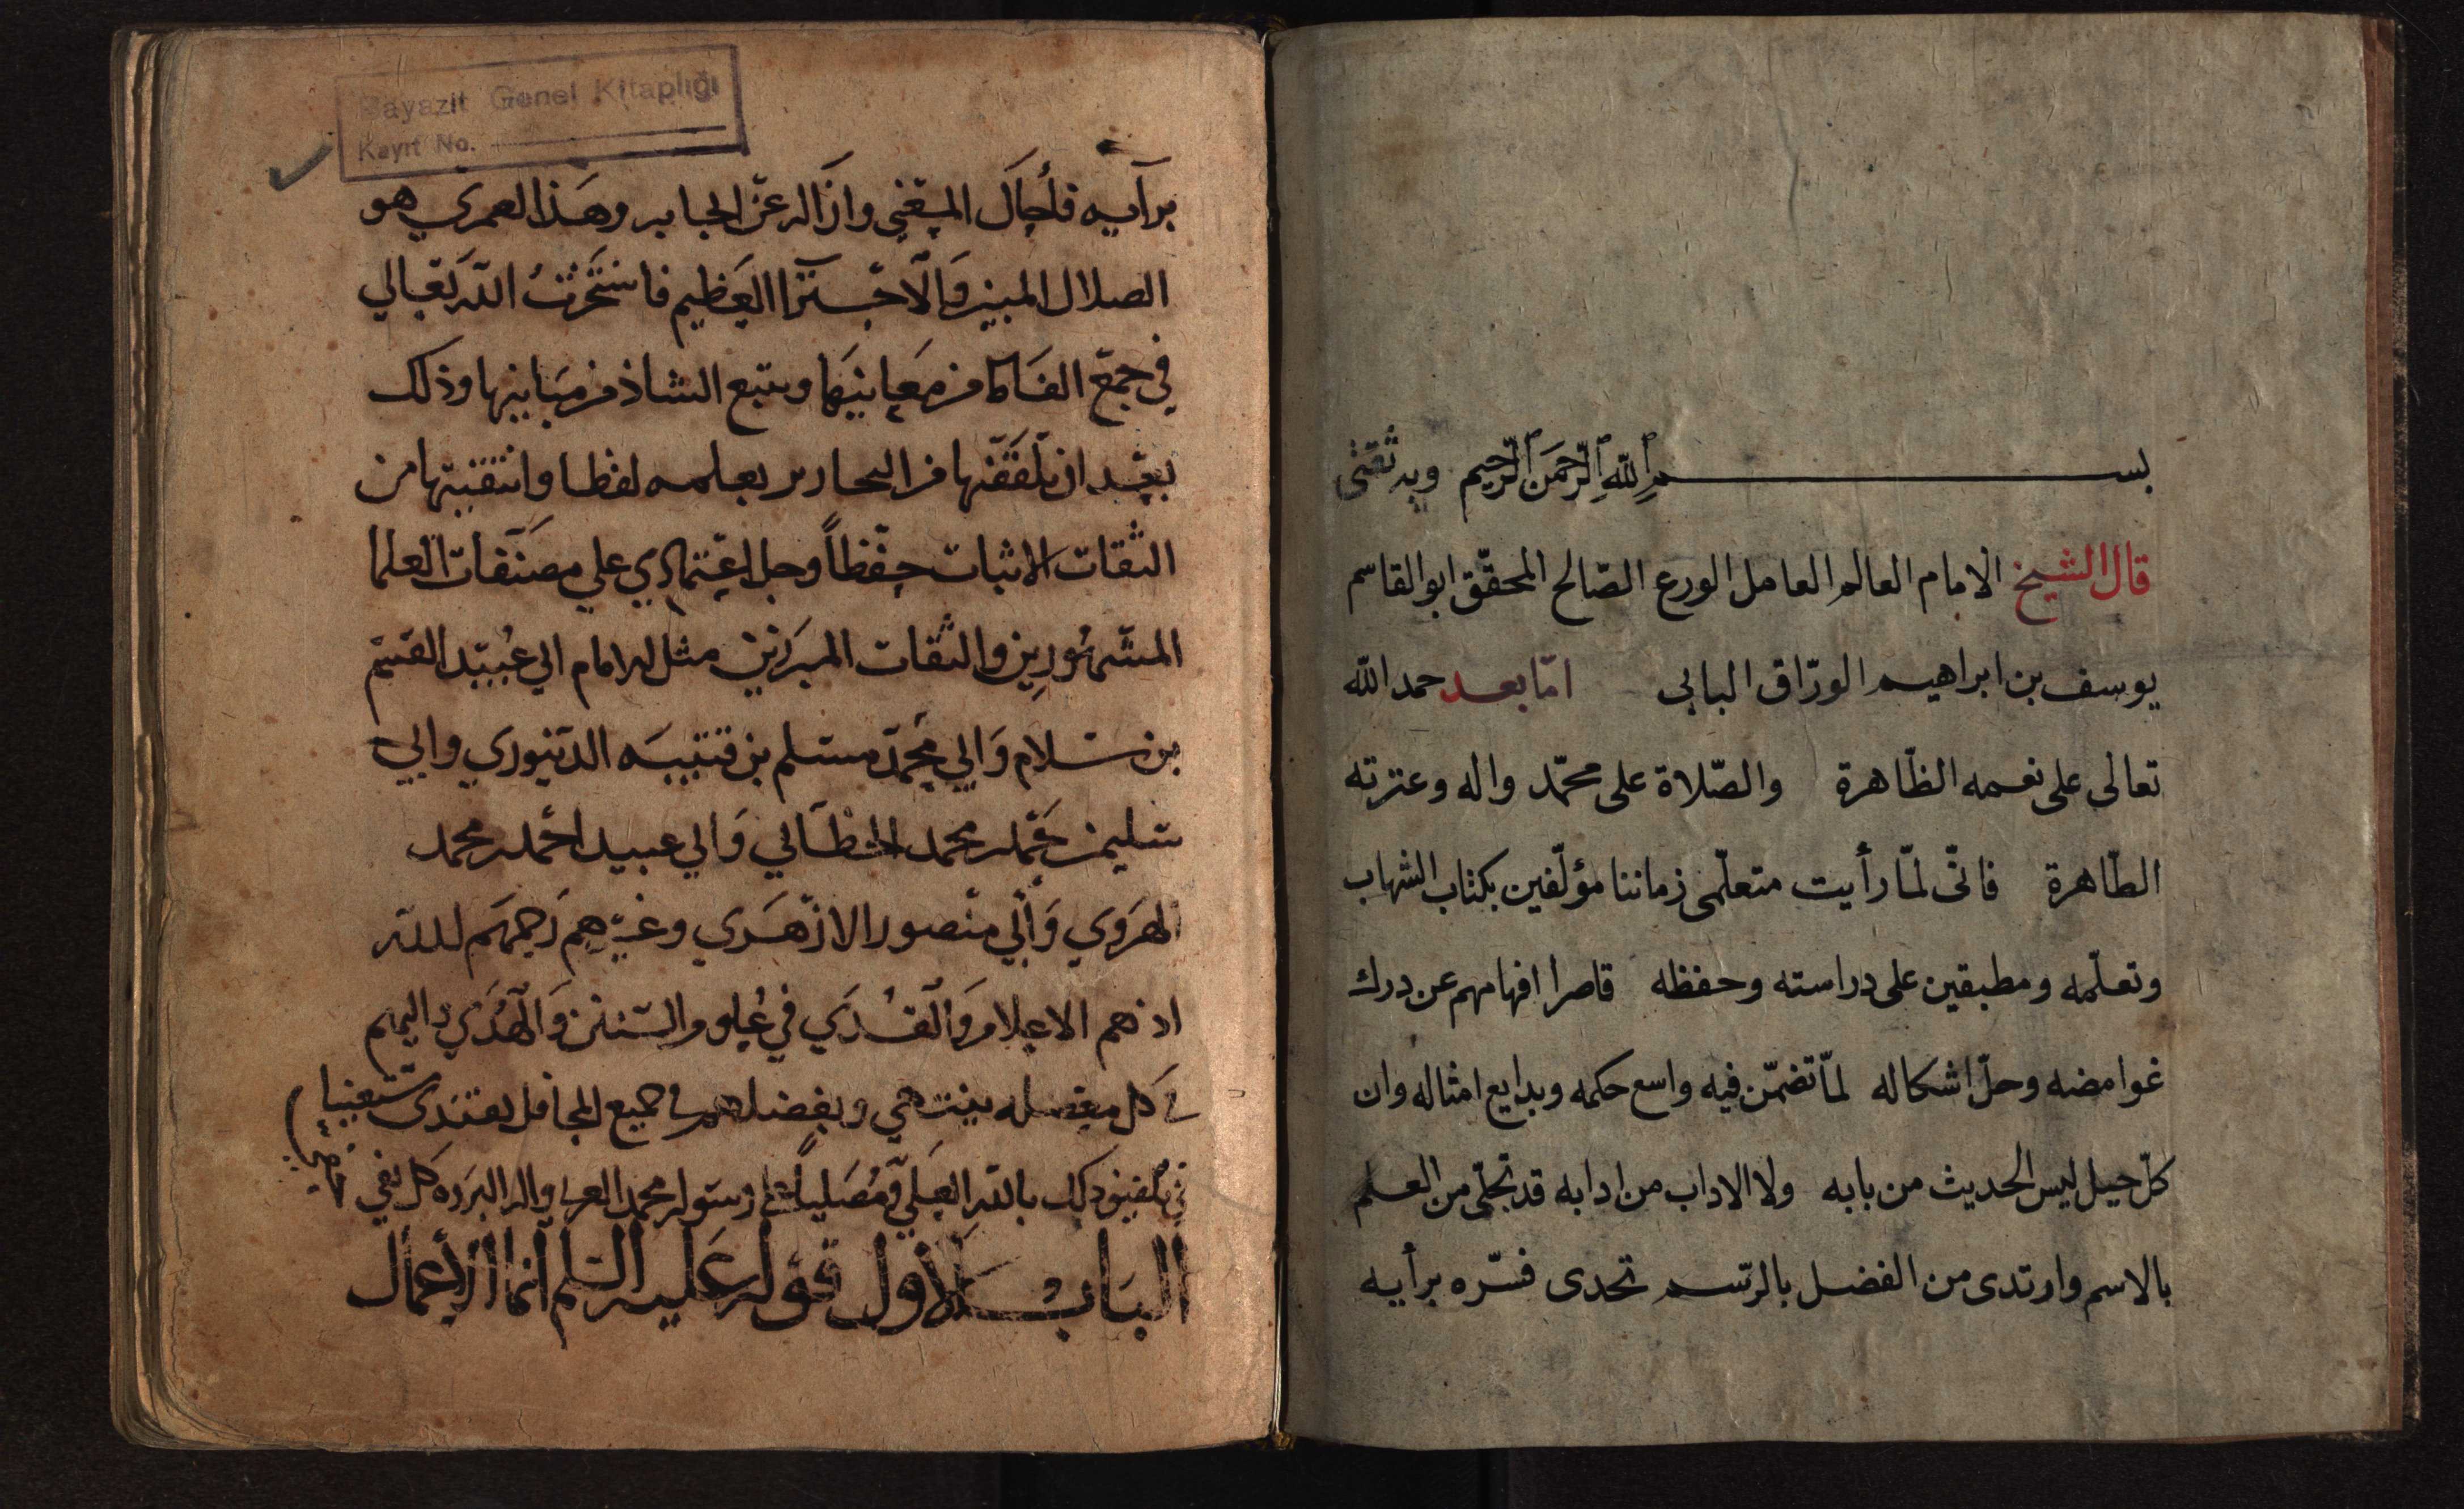 بسم الله الرحمن الرحيم وبه ثقتى
قال الشيخ الامام العالم العامل الورع الصّالح المحقّق ابو القاسم
يوسف بن ابراهيم الورّاق البابى امّا بعد حمد اللّه
تعالى على نعمه الظّاهرة والصّلاة على محمّد واله وعترته
الطّاهرة فانّى لمّا رأيت متعلّمى زماننا مؤلّفين بكتاب الشهاب
وتعلّمه ومطبقين على دراسته وحفظه قاصرا افهامهم عن درك
غوامضه وحلّ اشكاله لمّا تضمّن فيه واسع حكمه وبدايع امثاله وان
كلّ حيل ليس الحديث من بابه ولا الاداب من ادابه قد تجلّى من العلم
بالاسم وارتدى من الفضل بالرّسم تحدى فسّره برأيه
Bayazit Genel Kitaplığı
Kayıt No.
برآيه فأحال المعْنى وازَاله عن الجابر وهَذا لعمري هو
الضلال المبين وَالاجْتراالعَظيم فاسْتَخَرْتُ الله تعَالي
في جمعَ الفَاظ من معَانيهَا وتتبع الشاذ من مبَانيها وذلك
بعْد ان تلقفَّنها من النحارير بعلمه لفظا وانتقيتها من
الثقات الاثبات حِفْظاً وجل اعْتمادي علي مصنَّفات العلما
المشَهُورِين والثقات المبرَزين مثل الامام ابي عُبيَد القسَم
بن سَلام وَابي محمَّد مسَلم بن قتيبَه الدينوري وابي
سَليمن حَمْد بن محمد الخطَابي وَابي عبيد احْمد بن محمد
الهرَوي وَأبي منْصور الازْهَري وغيْرهم رَحمهَم الله
اذ هم الاعلام وَالقُدَي في عُلوم السّنن وَالهُدَي واليهم
في كل معضله ينتهي وبفضلهم في جميع المحافل يقتدى مسَتعينا
في تلفيق ذلك بالله العَلي وَمُصَلياً على رسَوله محمد العربي واله البررَه كل تقي
البَابُ الأول قوله عَليه السّلم انما الأعمال